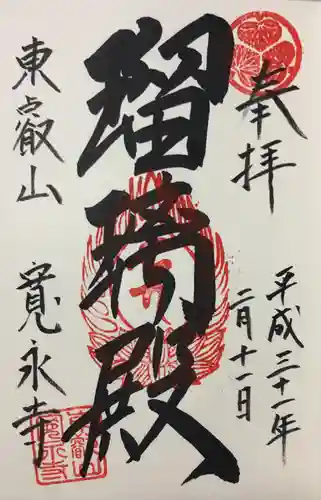 奉拝
平成三十一年
二月十一日
瑠璃殿
東叡山
寛永寺